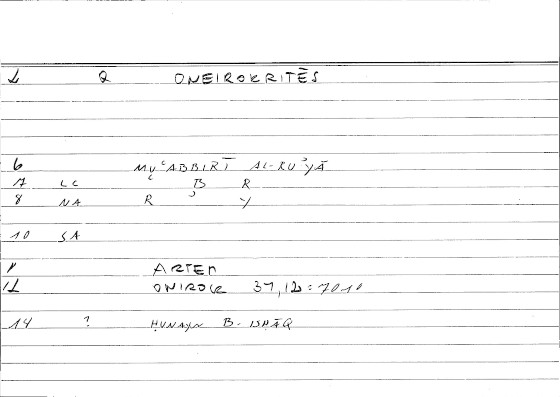 1 Q ONEIROKRITĒS
6 MUʿABBIRĪ AL-RUʾYĀ
7 LC B R
8 NA R ʾ Y
10 SA
ARTEM
12 ONIROCR
14 ? ḤUNAYN B. ISḤĀQ